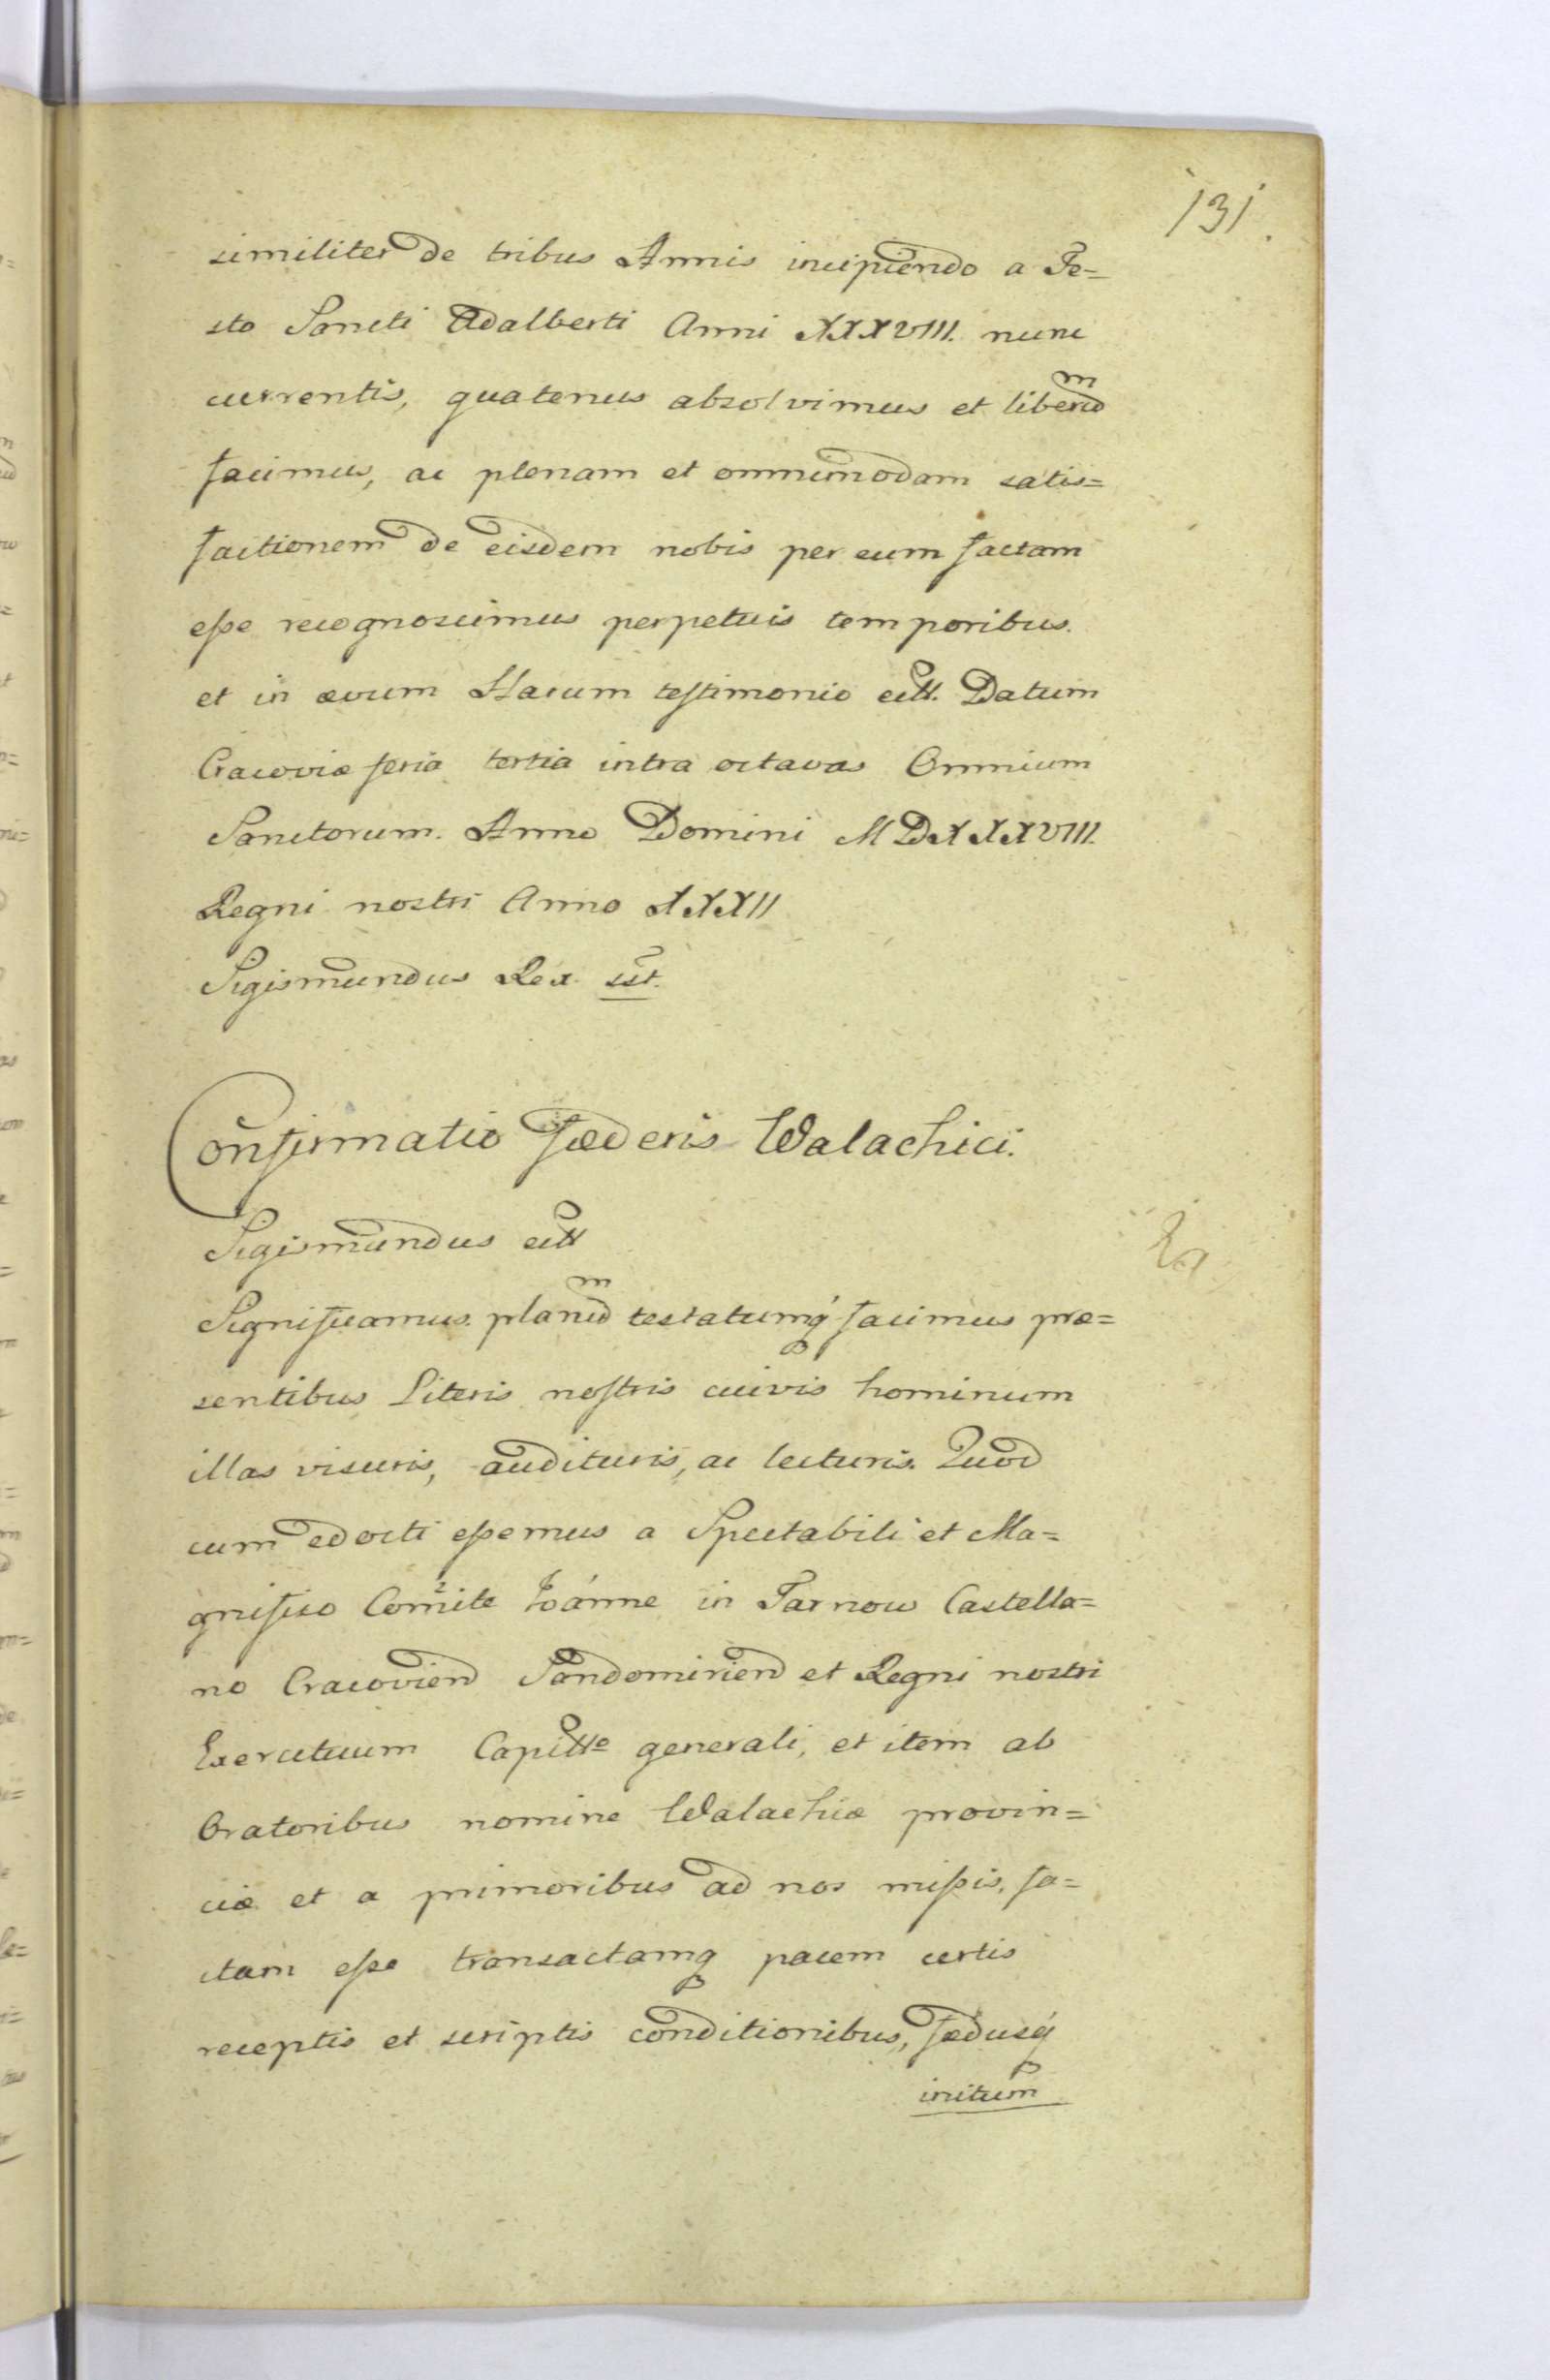 131.
similiter de tribus Annis incipiendo a Fe=
sto Sancti Adalberti Anni XXXVIII. nunc
currentis, quatenus absolvimus et liberū
facimus, ac plenam et omnimodam satis=
factionem de eisdem nobis per eum factam
eße recognoscimus perpetuis temporibus.
et in ævum Harum testimonio ett. Datum
Cracoviæ feria tertia intra octavas Omnium
Sanctorum. Anno Domini MDXXXVIII.
Regni nostri Anno XXXII
Sigismundus Rex sst.
Confirmatio Fæderis Walachici.
Sigismundus ett
Significamus. planū testatumq́ facimus præ=
sentibus Literis nostris cuivis hominum
illas visuris, audituris, ac lecturis. Quod
cum edocti eßemus a Spectabili et Ma=
gnifico Comite Joanne in Tarnow Castella=
no Cracovien Sandomirien et Regni nostri
Exercituum Capitto generali, et item ab
Oratoribus nomine Walachiæ provin=
ciæ et a primoribus ad nos mißis, fa=
ctam eße transactamq pacem certis
receptis et scriptis conditionibus, fædusq́
initum